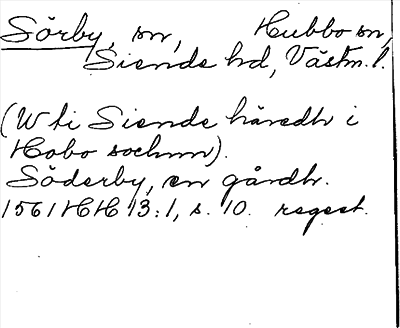 Sörby, sn, Hubbo sn,
Siende hd, Västm. l.
(W ti Siende häredh i
Hobo sochnn).
Söderby, en gårdh.
1561 HH 13:1, s. 10. regest.